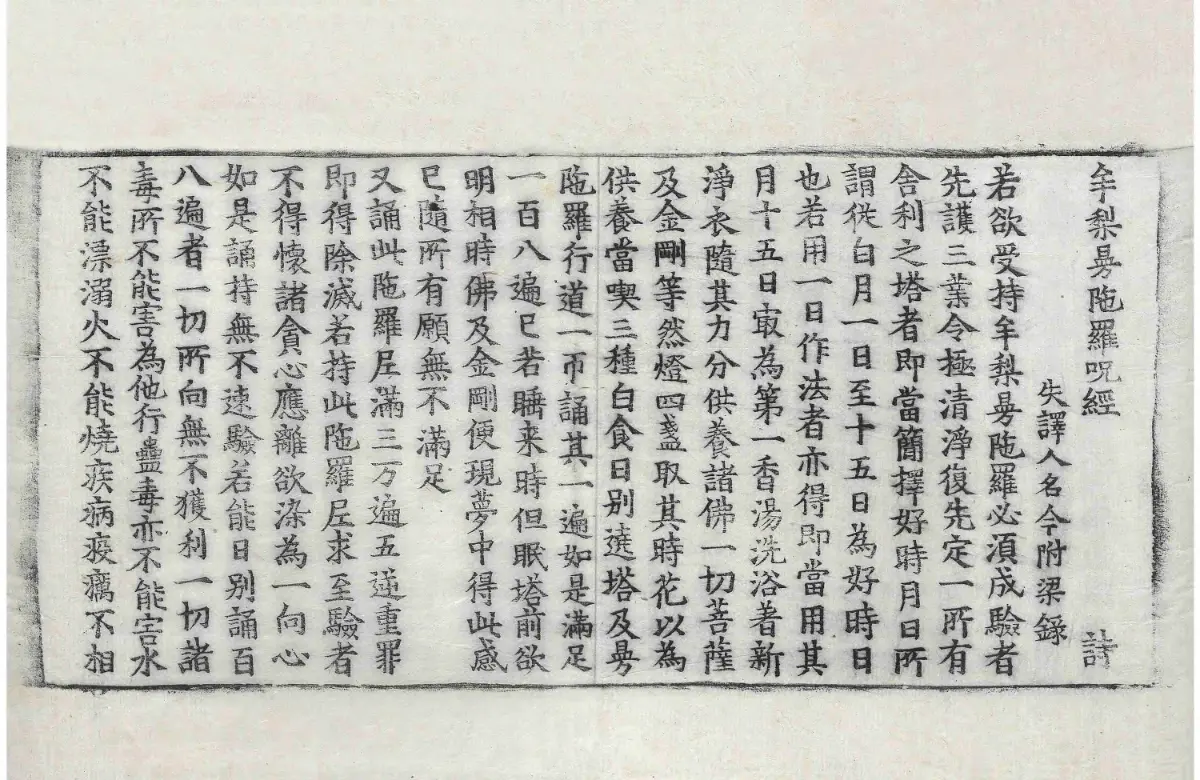 牟梨曼陁羅呪經　詩
失譯人名今附梁錄
若欲受持牟梨曼陁羅必湏成驗者
先護三業令極清淨復先定一所有
舎利之塔者即當簡擇好時月日所
謂從白月一日至十五日為好時日
也若用一日作法者亦得即當用其
月十五日㝡為第一香湯洗浴著新
淨衣隨其力分供養諸佛一切菩薩
及金剛等然燈四盞取其時花以為
供養當喫三種白食日別遶塔及曼
陁羅行道一帀誦其一遍如是滿足
一百八遍已若睡来時但眠塔前欲
明相時佛及金剛便現夢中得此感
已隨所有願無不滿足
又誦此陁羅尼滿三万遍五逆重罪
即得除滅若持此陁羅尼求至驗者
不得懷諸貪心應離欲染為一向心
如是誦持無不速驗若能日別誦百
八遍者一切所向無不獲利一切諸
毒所不能害為他行蠱毒亦不能害水
不能漂溺火不能燒疾病疫癘不相